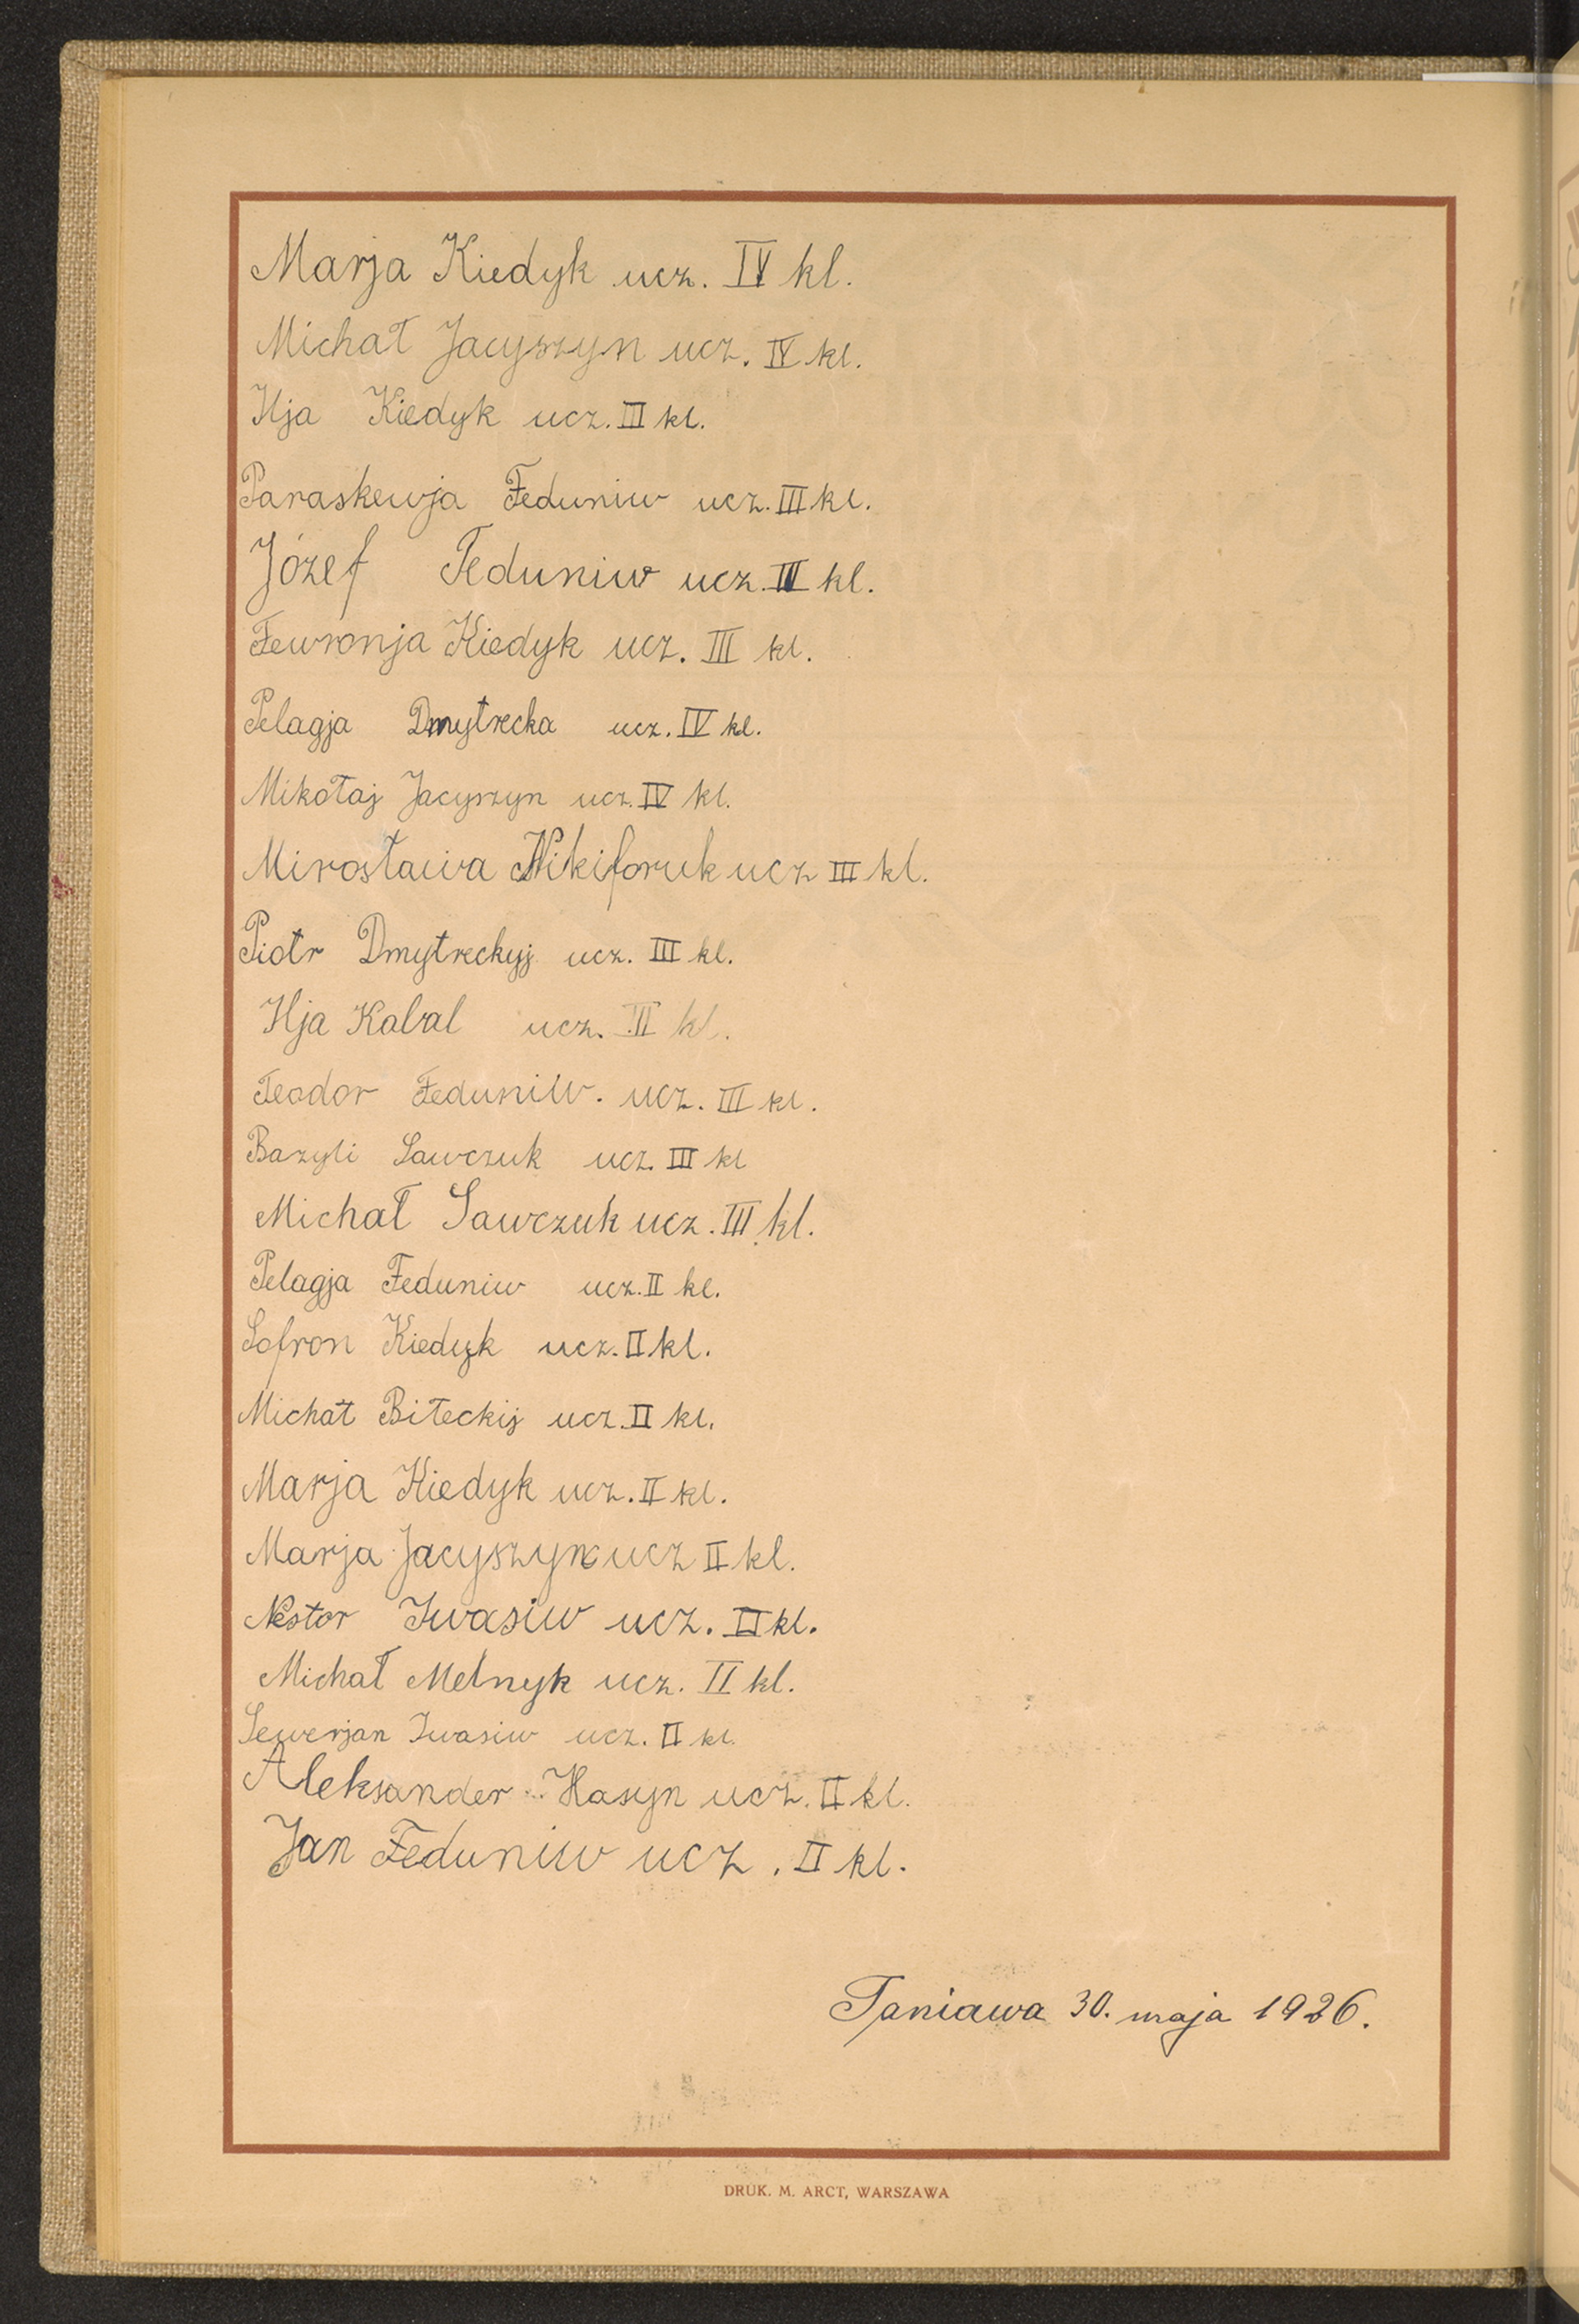 Marja Kiedyk ucz. IV kl.
Michał Jacyszyn ucz. IV kl.
Ilja Kiedyk ucz. III kl.
Paraskewja Feduniw ucz. III kl.
Józef Feduniw ucz. III kl.
Fewronja Kiedyk ucz. III kl.
Pelagja Dmytrecka ucz. IV kl.
Mikołaj Jacyszyn ucz. IV kl.
Mirosława Nikiforuk ucz III kl.
Piotr Dmytreckyj ucz. III kl.
Ilja Kabal ucz. II kl.
Teodor Feduniw. ucz. III kl.
Bazyli Sawczuk ucz. III kl
Michał Sawczuk ucz. III kl.
Pelagja Feduniw ucz. II kl.
Sofron Kiedyk ucz. II kl.
Michał Biłeckij ucz. II kl.
Marja Kiedyk ucz. II kl.
Marja Jacyszyn ucz II kl.
Nestor Iwasiw ucz. II kl.
Michał Melnyk ucz. II kl.
Sewerjan Iwasiw ucz. II kl.
Aleksander Hasyn ucz. II kl.
Jan Feduniw ucz. II kl.
Taniawa 30. maja 1926.
DRUK. M. ARCT, WARSZAWA